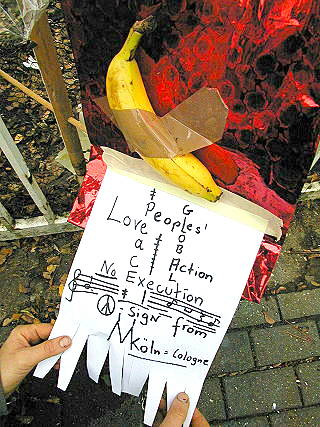 G
Peoples'
Love O
a B
C Action
L
No Execution
- Sign from
Köln = Cologne